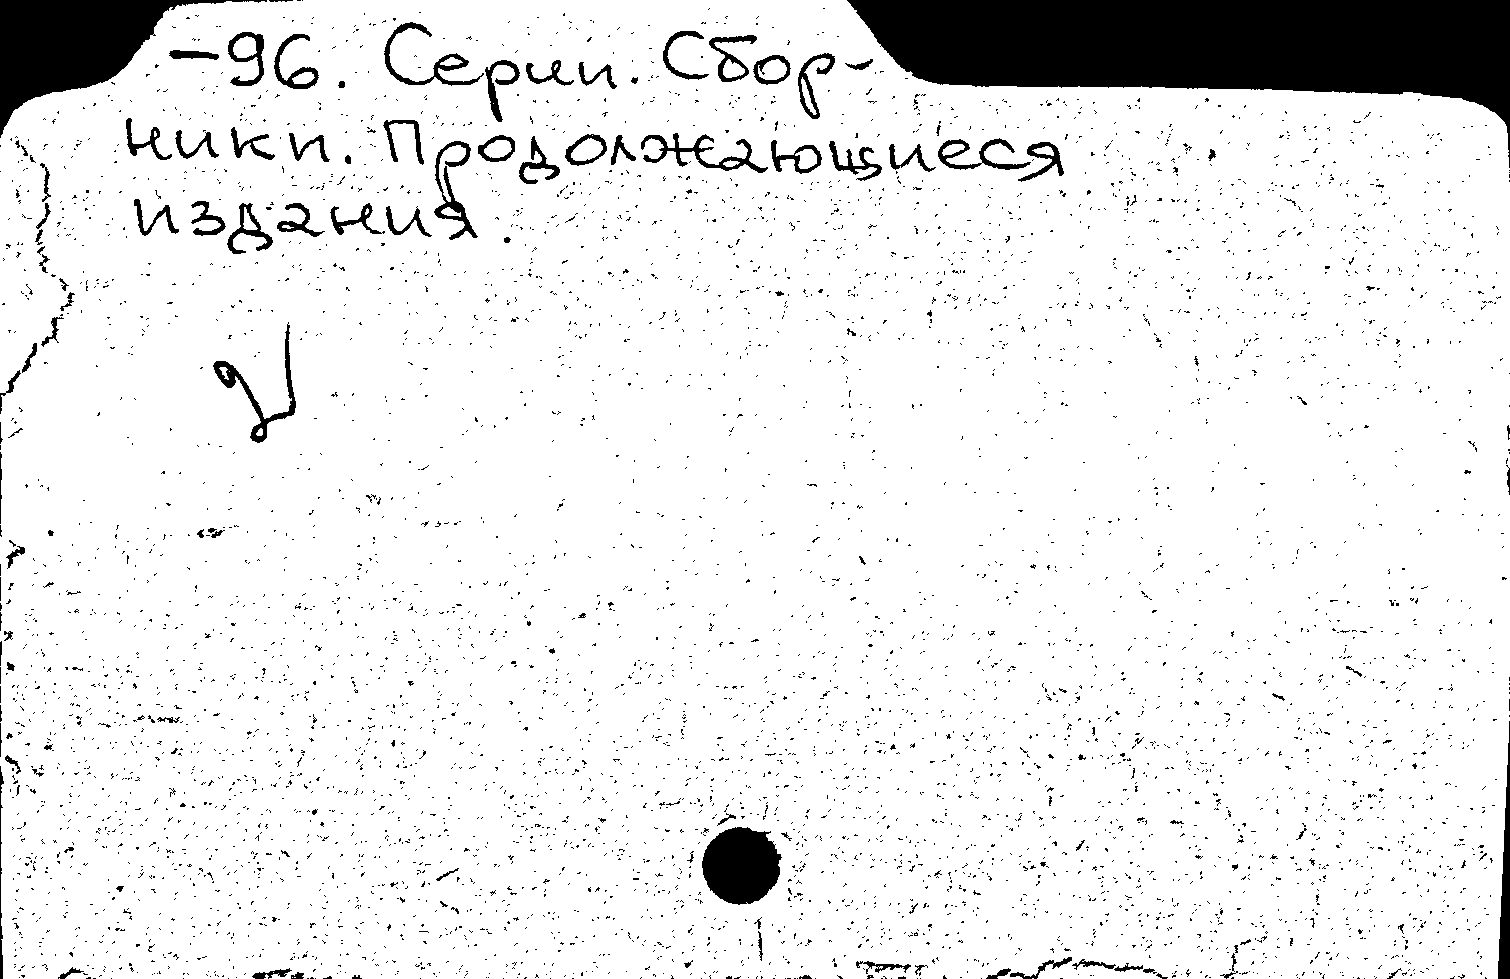 -96. Серии. Сбор-
ники. Продолжающиеся
издания.